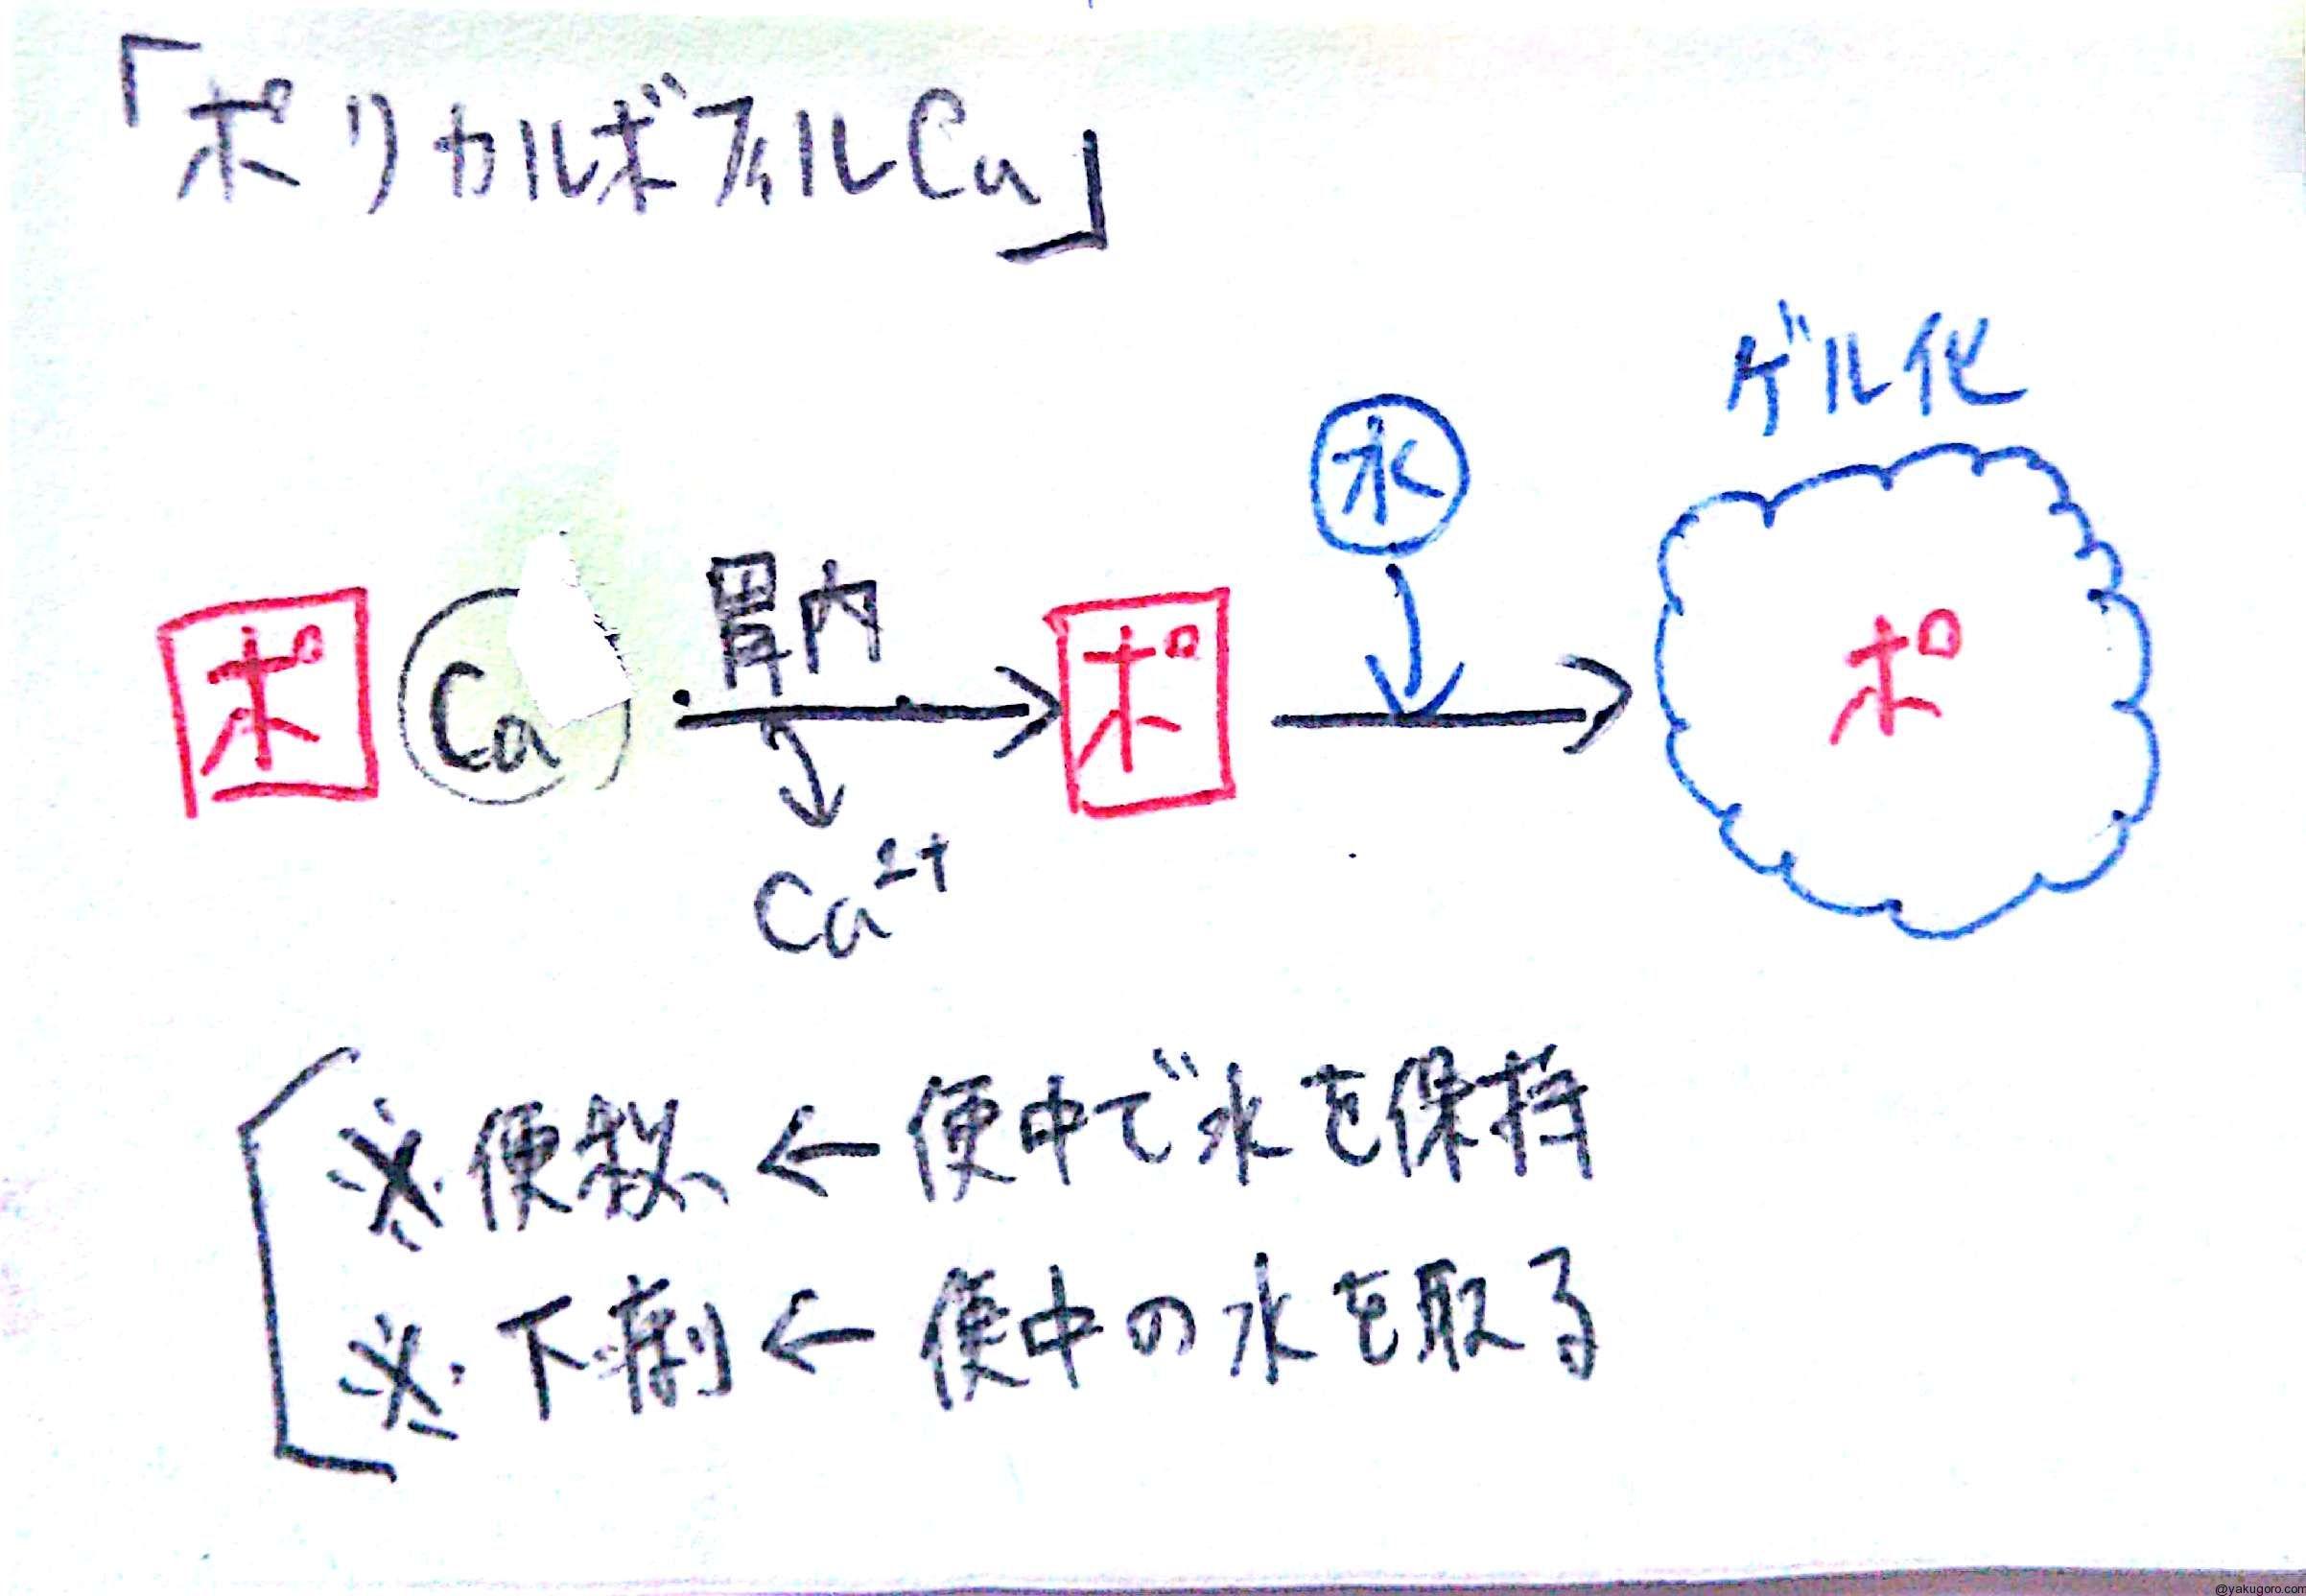 「ポリカルボフィルCa」
ゲル化
水
胃内
ポ Ca ポ ポ
Ca2+
※便秘 ← 便中で水を保持
※下痢 ← 便中の水を取る
@yakugoro.com